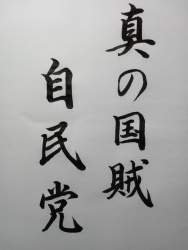 真の国賊
自民党